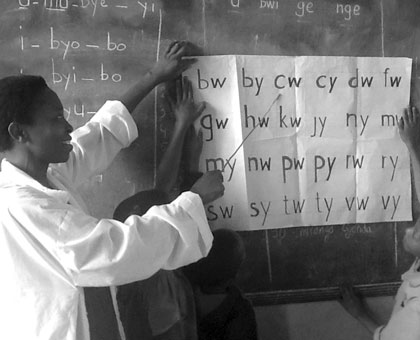 a - mu - bye - yi
a bwi ge nge
i - byo - bo
byi - bo
bw by cw cy dw fw
gw hw kw jy ny mw
my nw pw py rw ry
sw sy tw ty vw vy